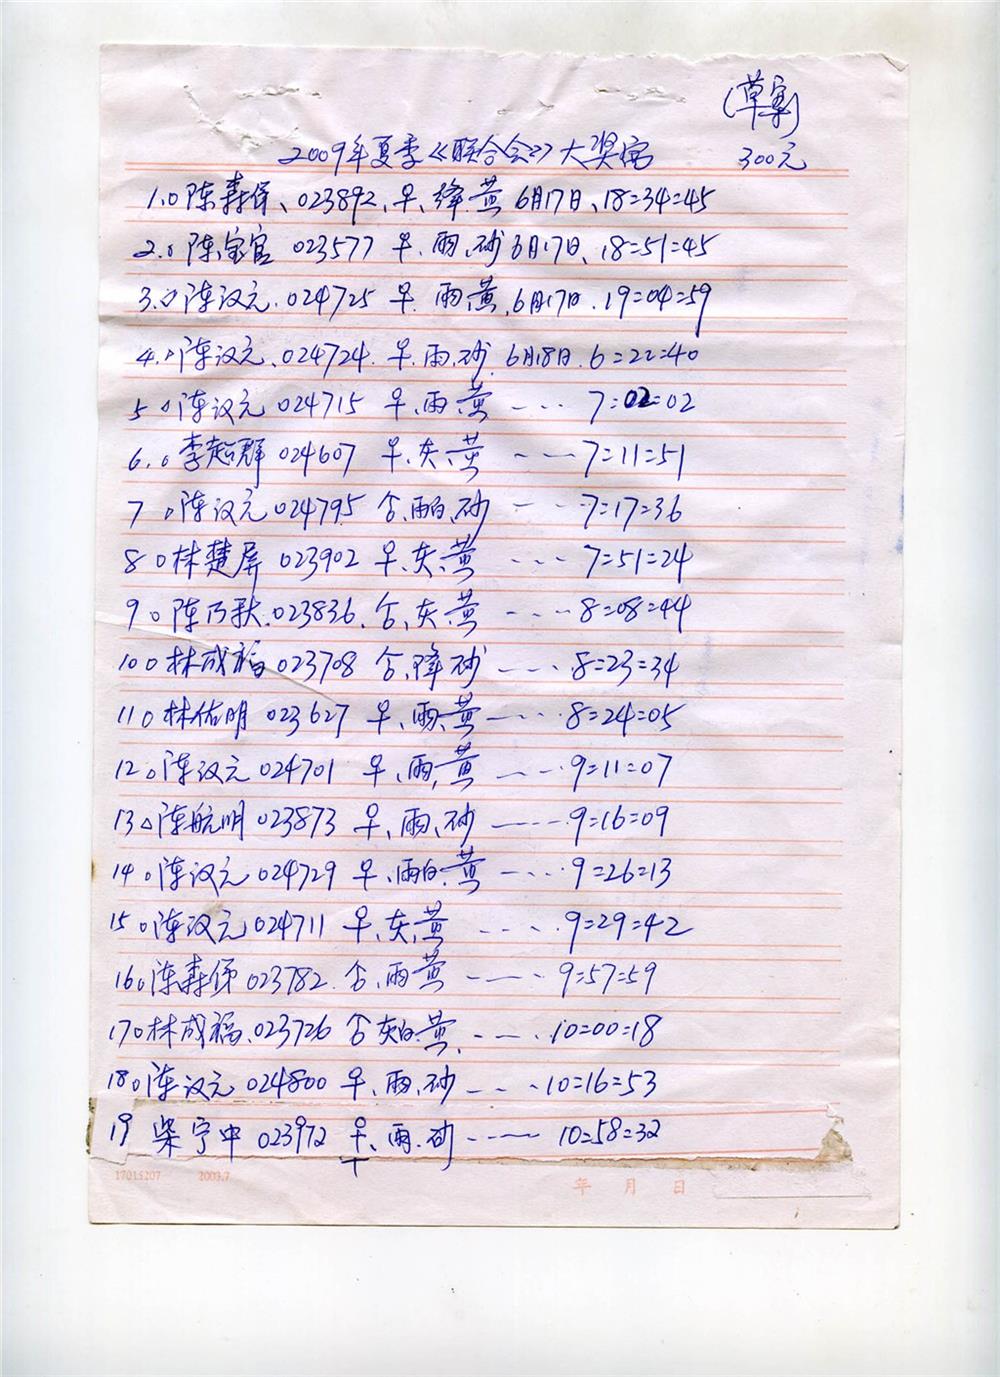 (草案)
2009年夏季《联合会》大奖宫 300元
1.0陈森保、023892、早、绛.黄 6月17日、18=34=45
2.0陈宝官 023577 早.雨.砂 6月17日、18=51=45
3.0陈汉元.024725 早 雨黄.6月17日.19=04=59
4.0陈汉元.024724.早.雨.砂.6月18日.6=22=40
5 0陈汉元 024715 早.雨.黄 -... 7=02=02
6.0李超群 024607 早.灰.黄 -·-- 7=11=51
7 0陈汉元 024795 合.雨白.砂 -·-- 7=17=36
8 0林楚屏 023902 早.灰.黄 -... 7=51=24
9 0陈乃秋.023836.合.灰.黄 -·--- 8=08=44
10 0林成福 023708 合.绛.砂 -·--- 8=23=34
11 0林佑明 023627 早.雨.黄 -·-·· 8=24=05
12 0陈汉元 024701 早.雨.黄 -·-·· 9=11=07
13△陈航明 023873 早.雨.砂 ------ 9=16=09
14.0陈汉元 024729 早.雨白.黄 -·-·· 9=26=13
15 0陈汉元 024711 早.灰.黄 -·-·· 9=29=42
16 0陈森保 023782.合.雨黄 -·--- 9=57=59
17 0林成福.023726 合 灰白.黄.-·-- 10=00=18
18 0陈汉元 024800 早.雨.砂 -·-·· 10=16=53
19 柴宁中 023972 早.雨.砂 -·---- 10=58=32
17015207 2003.7 年 月 日